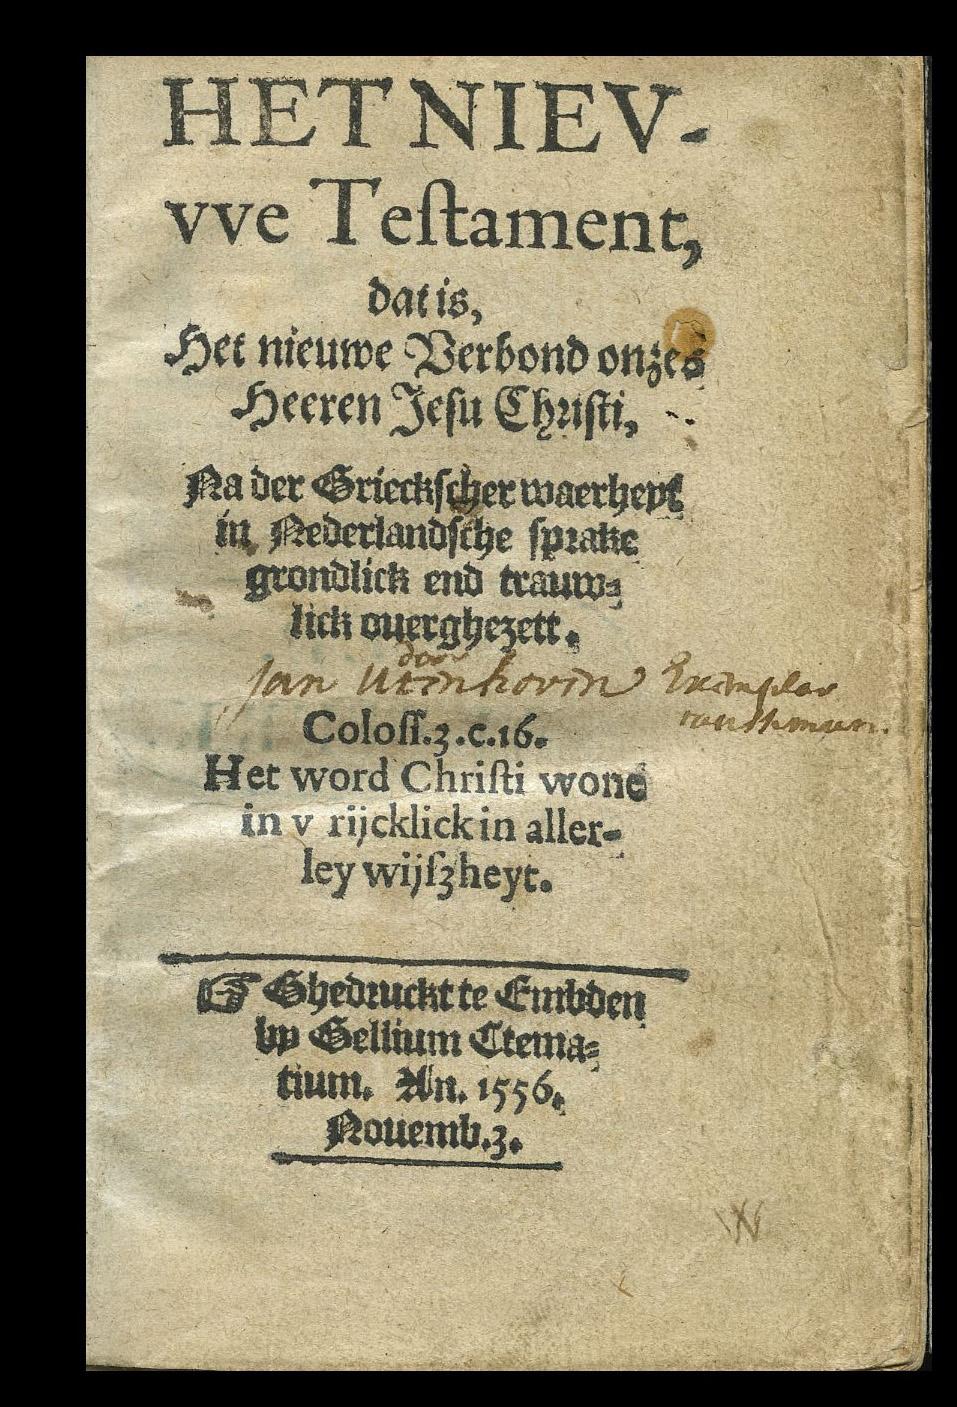 HET NIEV-
vve Teſtament,
dat is,
Het nieuwe Verbond onzes
Heeren Jeſu Chriſti,
Na der Grieckſcher waerheyt
in Nederlandſche ſprake
grondlick end trauw⸗
lick ouerghezett.
door
Jan Utenhovin Exemplar
Coloſſ.3.c.16.
Het word Chriſti wone
in v rijcklick in aller-
ley wijſzheyt.
☞ Ghedruckt te Embden
by Gellium Ctema⸗
tium. An. 1556.
Nouemb.3.